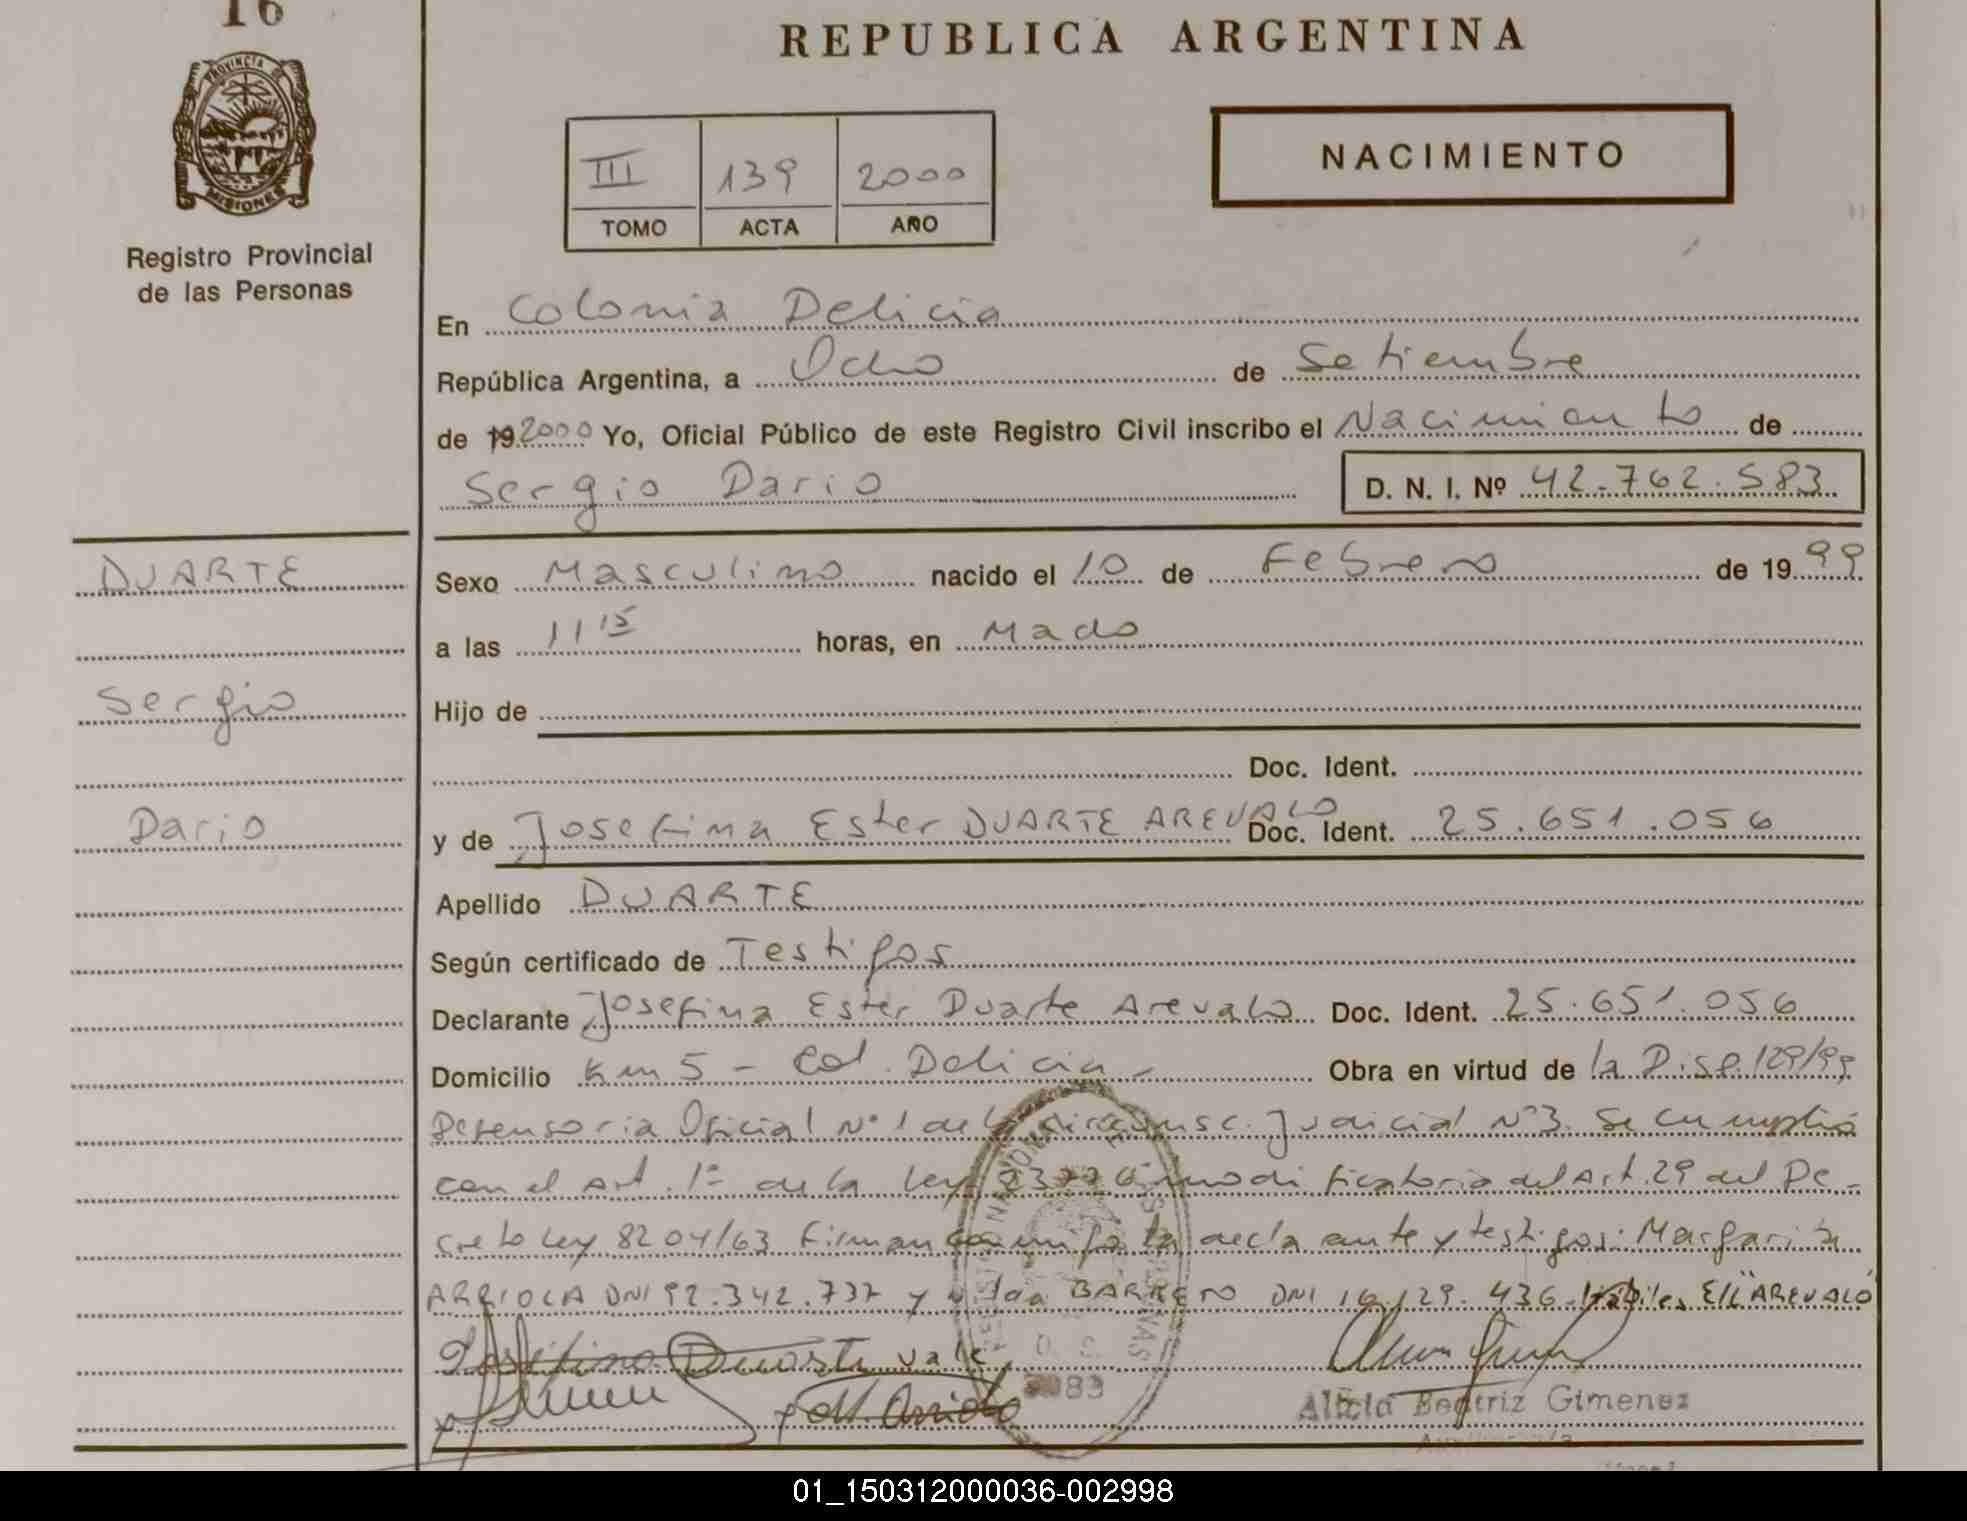 16
PROVINCIA DE
MISIONES
Registro Provincial
de las Personas
REPUBLICA ARGENTINA
III 139 2000
TOMO ACTA AÑO
NACIMIENTO
En Colonia Delicia
República Argentina, a Ocho de Setiembre
de 192000 Yo, Oficial Público de este Registro Civil inscribo el Nacimiento de
Sergio Dario D. N. I. Nº 42.762.583
DUARTE
Sergio
Dario
Sexo Masculino nacido el 10 de Febrero de 1999
a las 11 15 horas, en Mado
Hijo de
Doc. Ident.
y de Josefina Ester DUARTE AREVALO Doc. Ident. 25.651.056
Apellido DUARTE
Según certificado de Testigos
Declarante Josefina Ester Duarte Arevalo Doc. Ident. 25.651.056
Domicilio Km 5 - Col. Delicia - Obra en virtud de la Disp. 129/99
Defensoria Oficial Nº 1 de la circunsc. Judicial Nº 3. Se cumplió
con el art. 1º de la Ley modificatoria del Art. 29 del De-
creto Ley 8204/63 Firman conmigo la declarante y testigos: Margarita
ARRIOLA DNI 92.342.737 y BARRERO DNI 16.129.436. hábiles E/L "AREVALO"
Josefina Duarte vale
M. Arriola
3083
Alicia Beatriz Gimenez
01_150312000036-002998